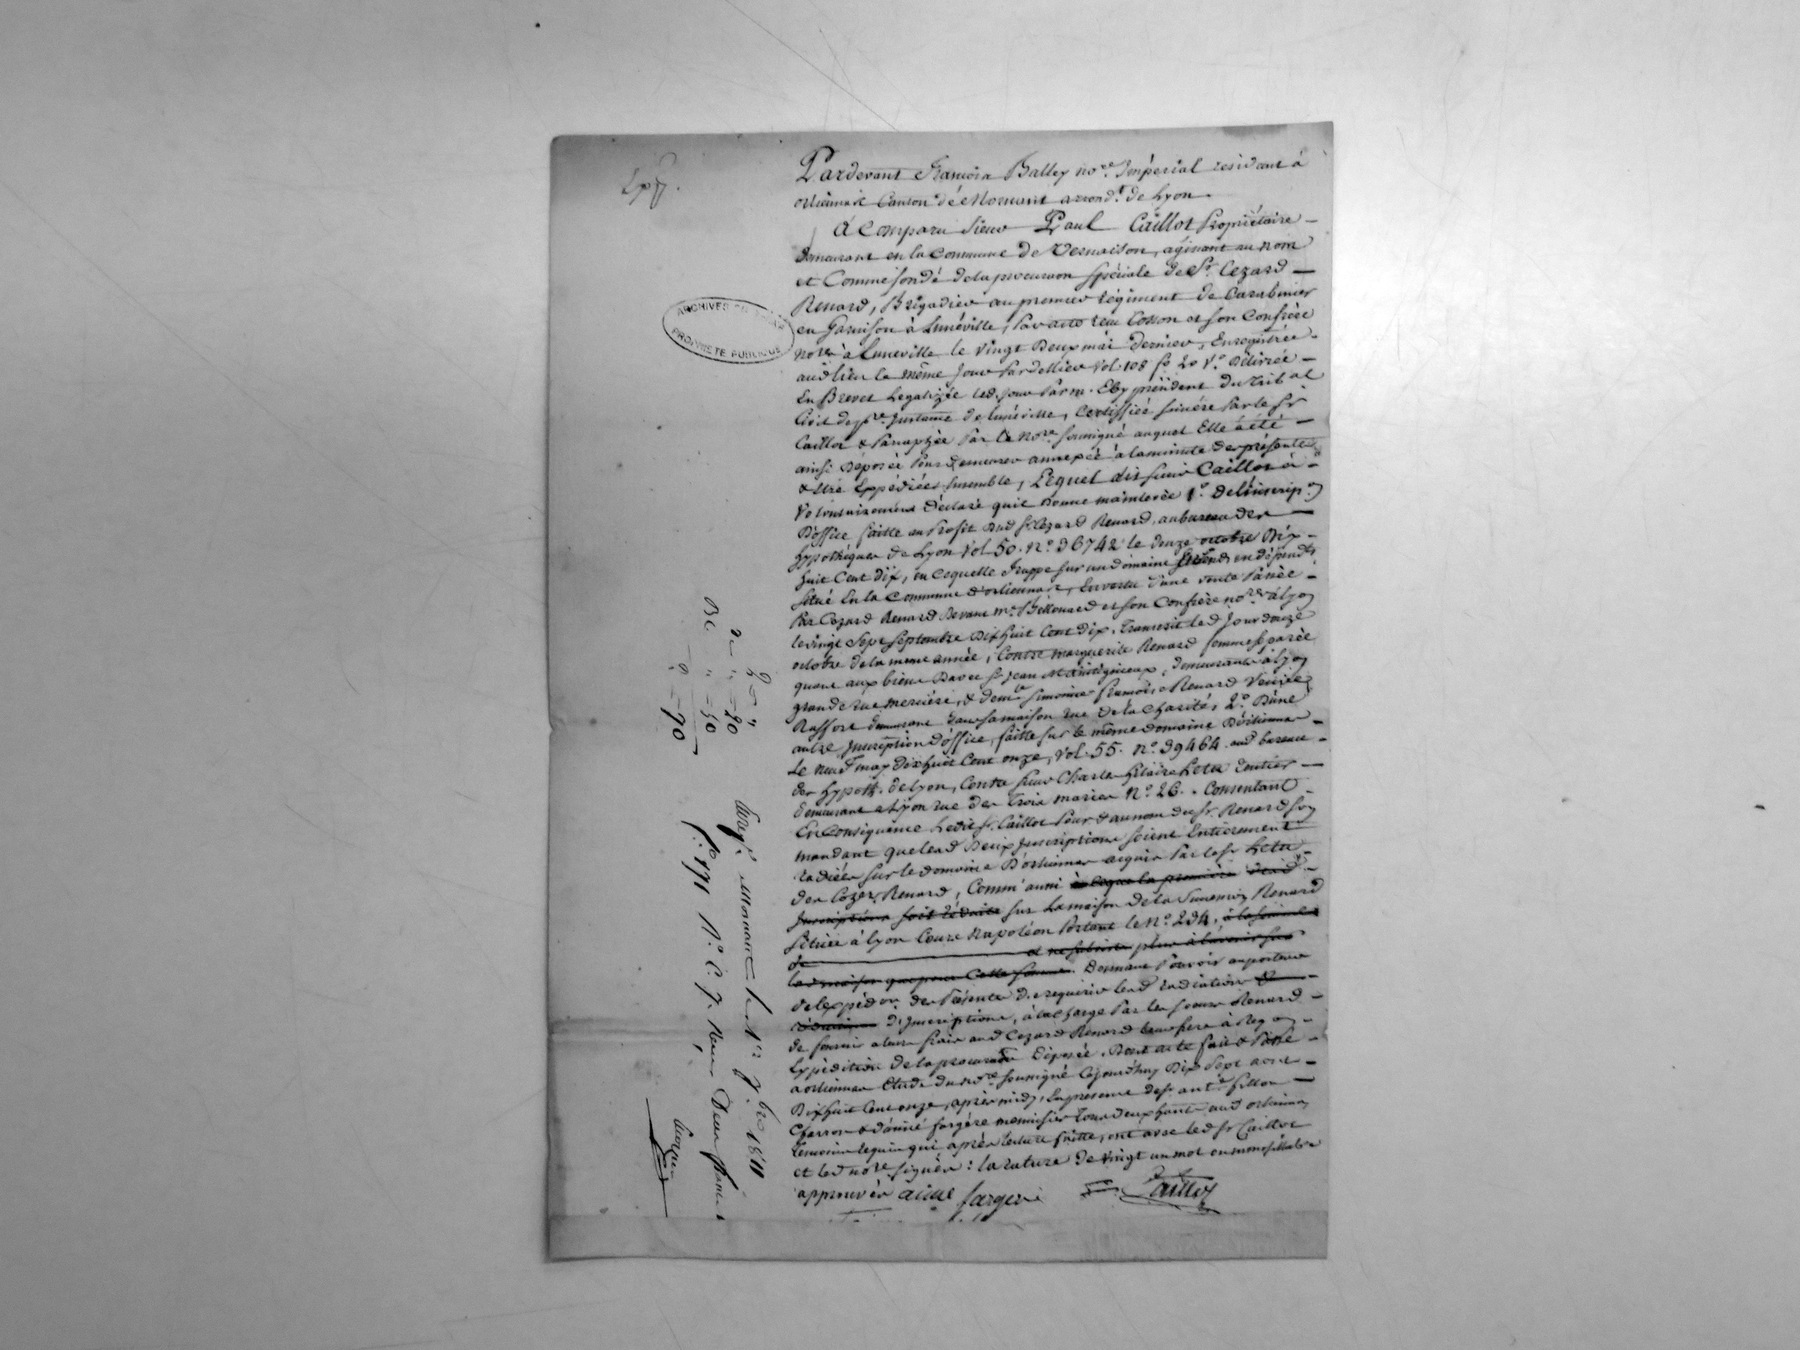 Pardevant François Balley no.re Impérial résidant à
orliennas Canton de Mornant arrond.t de Lyon.
A Comparu Sieur Paul Caillot Propriétaire
demeurant en la Commune de Vernaison, agissant au nom
et Comme fondé de la procuraon Spéciale de Sr. Cezard
Renard, Brigadier au premier régiment de Carabinier
en Garnison à Lunéville, par acte reçu Cosson et son Confrère
no.res à Luneville le vingt Deux mai dernier, Enregistrée
aud lieu le même jour par dellier vol. 108 f.o 20 V.o Délivrée
En Brevet Legalizée led. jour par m. Eby président du Tribal
Civil de p.re Instance de lunéville, Certiffiée sincère par le Sr
Caillot & Paraphée par le No.re Soussigné auquel Elle a été
ainsi déposée pour demeurer annexée à la minute des présentes
& Etre Expédiées Ensemble, Lequel dit sieur Caillot a
volontairement déclaré qu'il donne mainlevée 1.o De l'inscrip.on
D'office faitte au Profit dud Sr. Cezard Renard, au bureau des
hypothèques de Lyon Vol 50. N.o 36742 le douze octobre Dix
huit Cent dix, en ce qu'elle frappe sur un domaine
situé En la Commune d'orliennas, En vertu d'une vente Passée
Par Cezard Renard Devant m.e et son Confrère no.res à Lyon
le vingt Sept Septembre Dix huit Cent dix, Transcrit led jour douze
octobre de la meme année, Contre marguerite Renard femme séparée
quant aux biens D'avec Sr. Jean demeurante à Lyon
grande rue mercière, & dem.lle Simonne Françoise Renard Veuve
Raffort demeurant dans sa maison rue De la Charité, 2.o D'une
autre Inscription d'office, faitte sur le même domaine D'orliennas
Le neuf may dix huit Cent onze, Vol. 55. N.o 39464. aud bureau
des hypoth. de Lyon, Contre Sieur Charles hilaire rentier
demeurant à Lyon rue des Trois maries N.o 26. Consentant
En Conséquence Ledit Sr. Caillot Pour & au nom du Sr. Renard son
mandant que lesd Deux Inscriptions soient Entièrement
radiées sur le domaine D'orliennas acquis Par le Sr
des Cozer Renard, Comm'aussi à ce que la première desd
Inscriptions soit réduite sur La maison de la Renard
située à Lyon Cours Napoléon Portant le N.o 234, à la somme
de et ne subsiste plus à l'avenir sur
lad maison que pour Cette somme. Donnant Pouvoir au porteur
de l'expédon des Présentes De requérir lesd radiations &
réductions D'Inscriptions, à la Charge Par les soeurs Renard
de fournir à leurs frais aud Cezard Renard leur frère à
Expédition de la procuraon déposée. Dont acte fait & Passé
à orliennas Etude du No.re soussigné Cejourd'huy Dix Sept aout
Dix huit Cent onze, après midy, En présence de Sr. ant.e fillon
Charron & d'aimé fargère menuisier Tous deux habts aud orliennas,
Temoins requis qui après lecture faitte, ont avec led Sr Caillot
et led no.re signés : la rature de vingt un mot ou monosillabes
approuvés aimé fargere Caillot
ARCHIVES DU RHONE
PROPRIÉTÉ PUBLIQUE
2 " "
de " - 20
Be. " - 50
- 70
Enreg.é à Mornant le 1er 7bre 1811
f.o 171 N.o C. 7. Reçu Deux francs